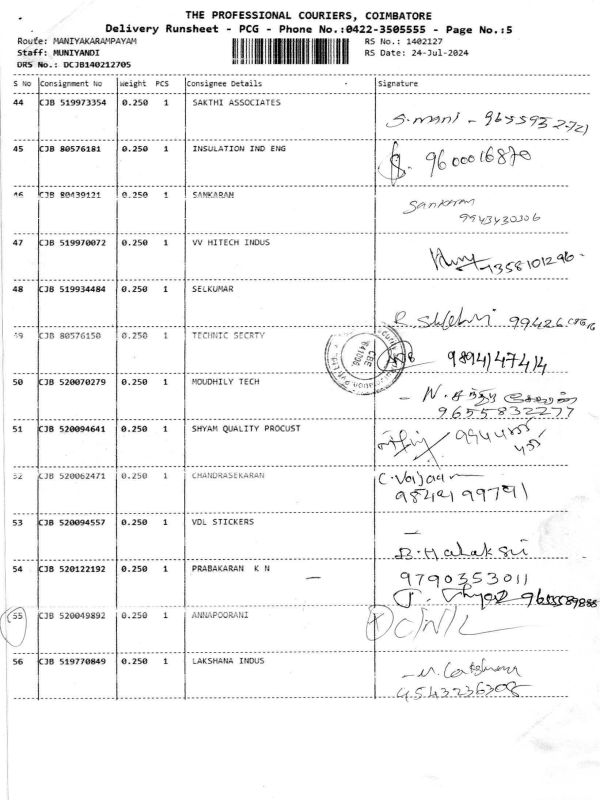 THE PROFESSIONAL COURIERS, COIMBATORE
Delivery Runsheet - PCG - Phone No.:0422-3505555 - Page No.:5
Route: MANIYAKARAMPAYAM
RS No.: 1402127
Staff: MUNIYANDI
RS Date: 24-Jul-2024
DRS No.: DCJB140212705
S No Consignment No Weight PCS Consignee Details Signature
44 CJB 519973354 0.250 1 SAKTHI ASSOCIATES
S. mani - 9655932721
45 CJB 80576181 0.250 1 INSULATION IND ENG
9600016870
46 CJB 80439121 0.250 1 SANKARAN
Sankaran
9943430306
47 CJB 519970072 0.250 1 VV HITECH INDUS
7358101296
48 CJB 519934484 0.250 1 SELKUMAR
99426
49 CJB 80576150 0.250 1 TECHNIC SECRTY
9894147414
CBE
50 CJB 520070279 0.250 1 MOUDHILY TECH
N.
9655832277
51 CJB 520094641 0.250 1 SHYAM QUALITY PROCUST
52 CJB 520062471 0.250 1 CHANDRASEKARAN
53 CJB 520094557 0.250 1 VDL STICKERS
54 CJB 520122192 0.250 1 PRABAKARAN K N
9790353011
55 CJB 520049892 0.250 1 ANNAPOORANI
56 CJB 519770849 0.250 1 LAKSHANA INDUS